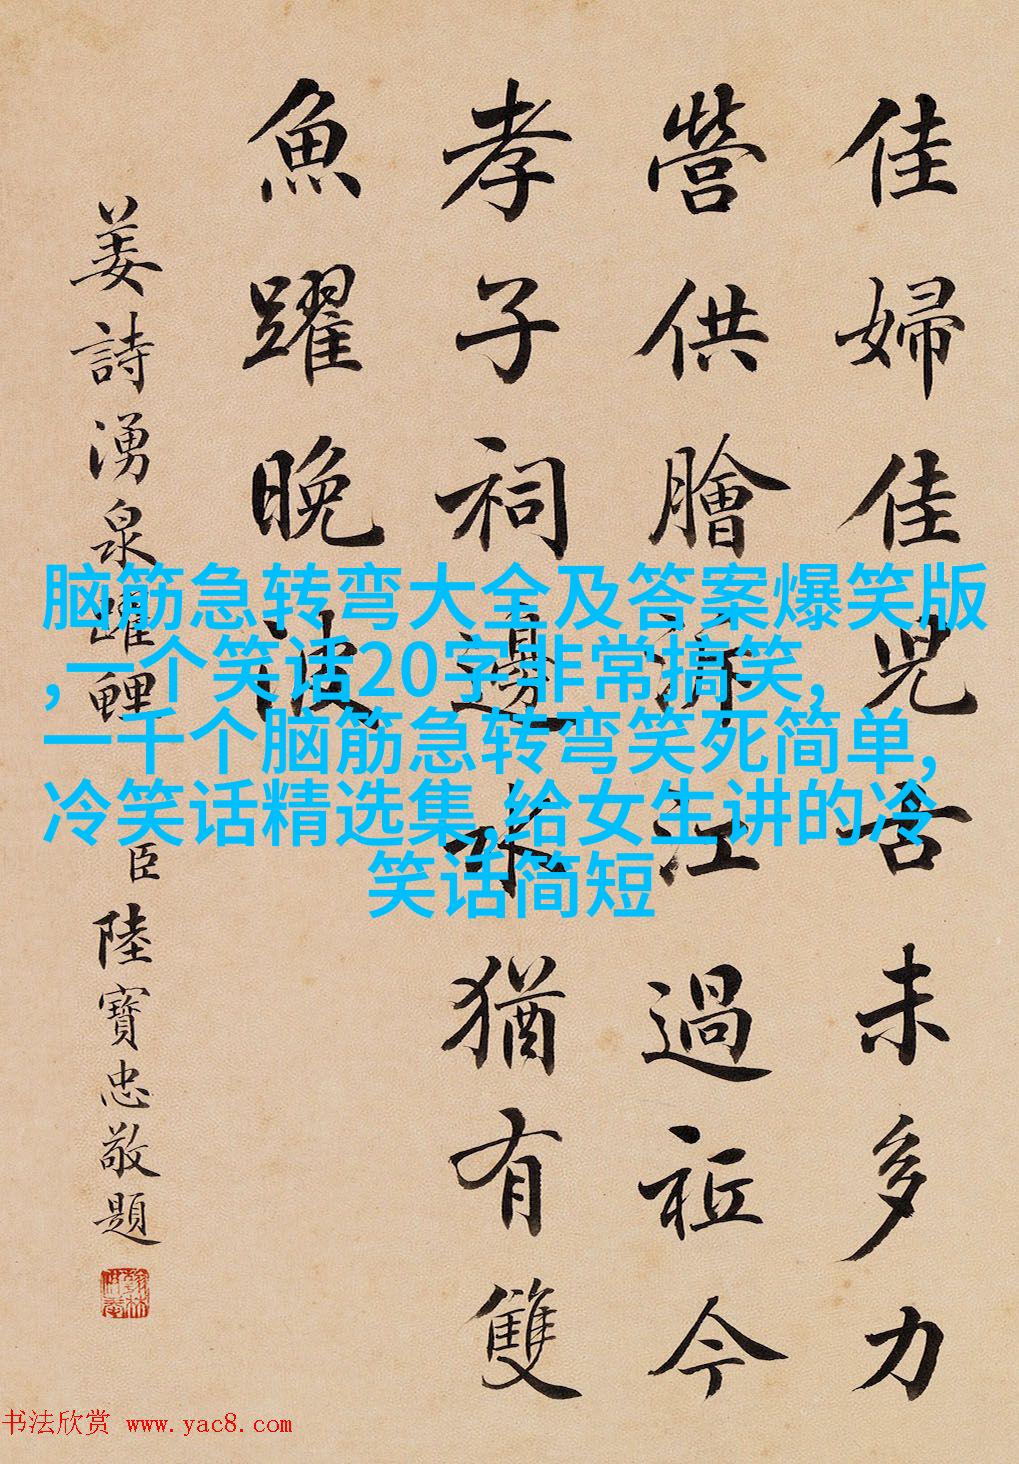 佳婦佳兒古未多力
營供膾泝江過祗今
孝子祠邊水猶有雙
魚躍晚波
姜詩湧泉躍鯉
臣陸寶忠敬題
脑筋急转弯大全及答案爆笑版
,一个笑话20字非常搞笑,
一千个脑筋急转弯笑死简单,
冷笑话精选集,给女生讲的冷
笑话简短
书法欣赏 www.yac8.com